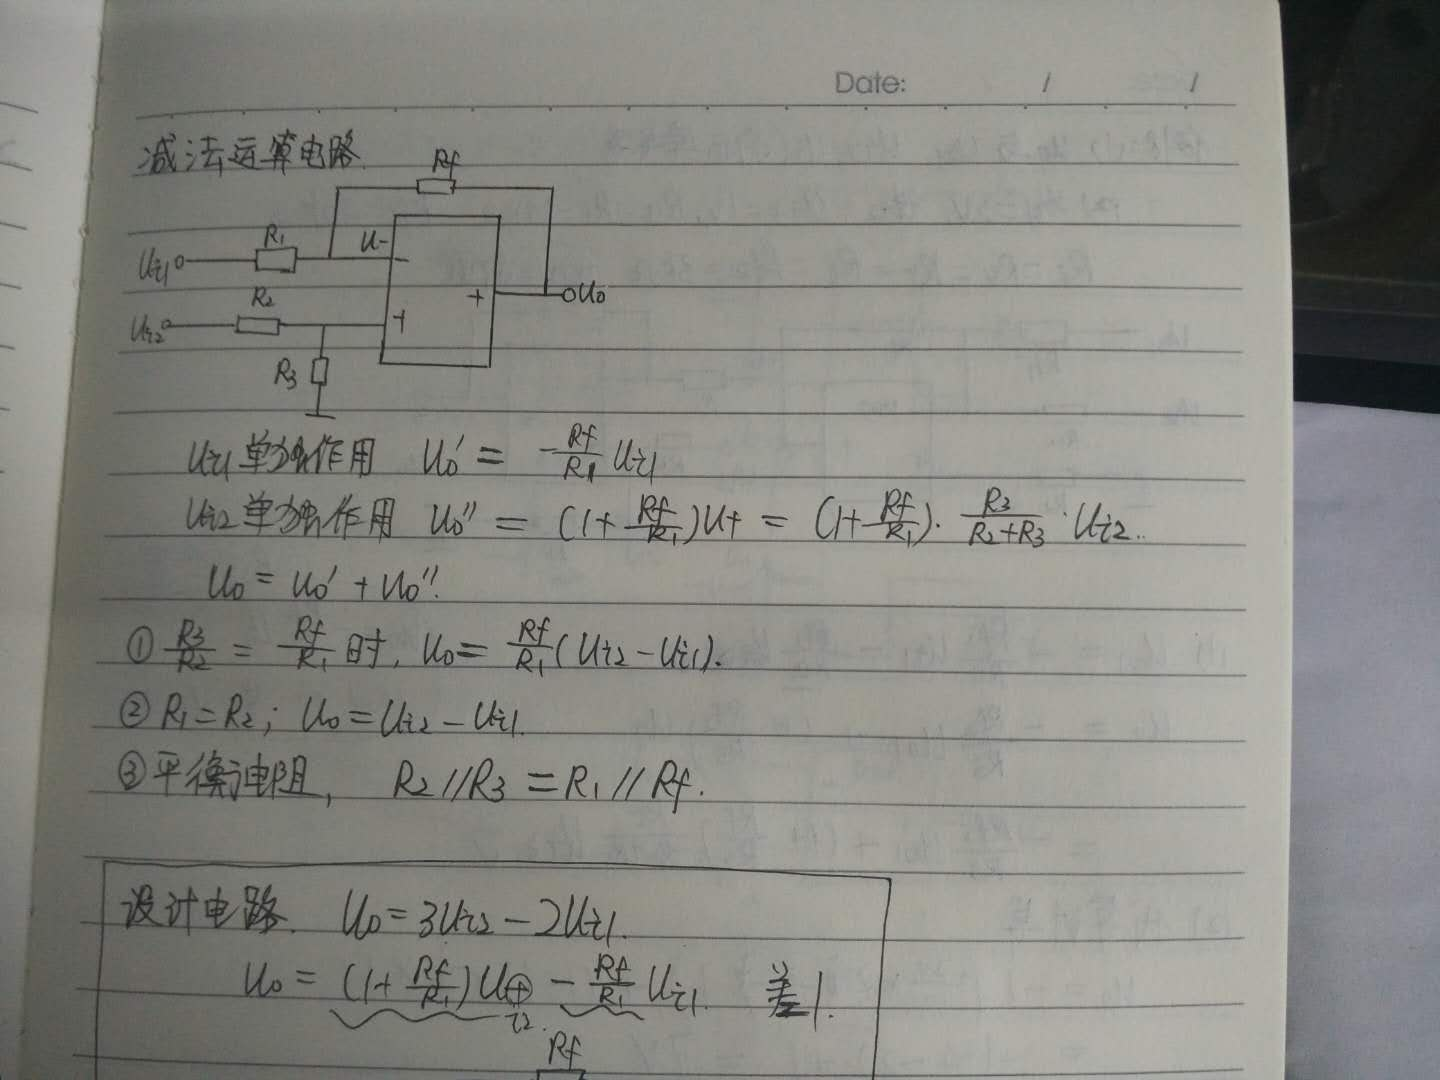 Date: / /
减法运算电路
Rf
R₁ U- -
Ui1
R₂ + Uo
Ui2 +
R₃
Ui1单独作用 Uo′ = -Rf/R₁ Ui1
Ui2单独作用 Uo″ = (1+Rf/R₁)U+ = (1+Rf/R₁)·R₃/(R₂+R₃)·Ui2..
Uo = Uo′ + Uo″.
① R₃/R₂ = Rf/R₁ 时, Uo = Rf/R₁(Ui2-Ui1).
② R₁=R₂; Uo=Ui2-Ui1.
③ 平衡电阻, R₂//R₃ = R₁//Rf.
设计电路. Uo=3Ui2-2Ui1.
Uo = (1+Rf/R₁)U+ - Rf/R₁ Ui1. 差1.
i2.
Rf